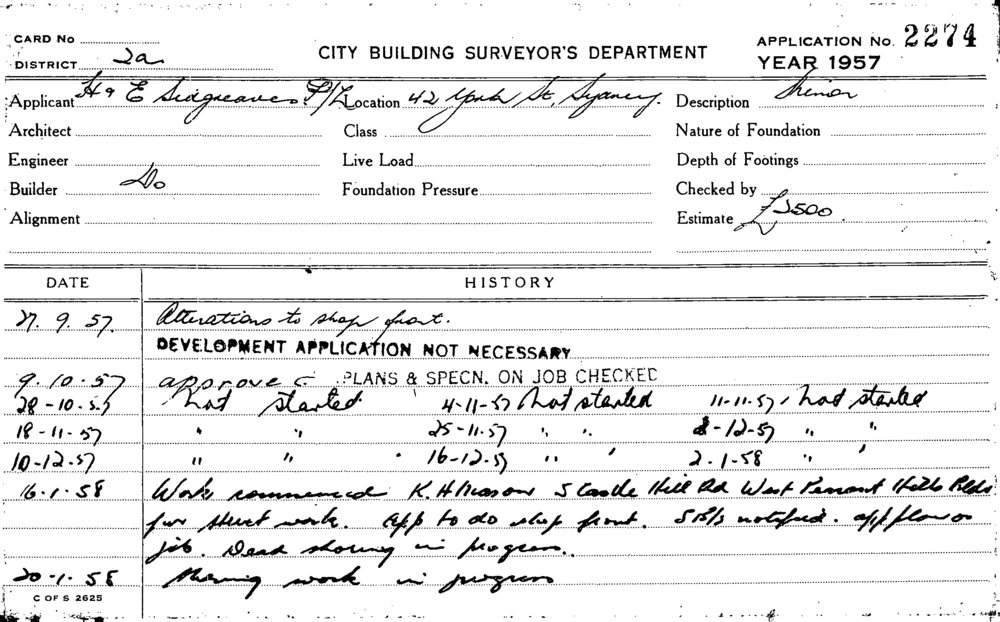 CARD No
DISTRICT 2a
CITY BUILDING SURVEYOR'S DEPARTMENT
APPLICATION No. 2274
YEAR 1957
Applicant H & E Sidgreaves P/L Location 42 York St, Sydney. Description Minor
Architect Class Nature of Foundation
Engineer Live Load Depth of Footings
Builder Do Foundation Pressure Checked by
Alignment Estimate £2500.
DATE HISTORY
27. 9. 57. Alterations to shop front.
DEVELOPMENT APPLICATION NOT NECESSARY
9. 10. 57 approved PLANS & SPECN. ON JOB CHECKED
28-10-57 Not started 4-11-57 Not started 11-11-57, Not started
18-11-57 " " 25-11-57 " " 2-12-57 " "
10-12-57 " " 16-12-57 " " 2-1-58 " "
16-1-58 Work commenced K. H Mason 5 Castle Hill Rd West Pennant Hills Bldr
for struct work. app to do shop front. notified. on
job. Dead shoring in progress.
20-1-58 Shoring work in progress
C OF S 2625